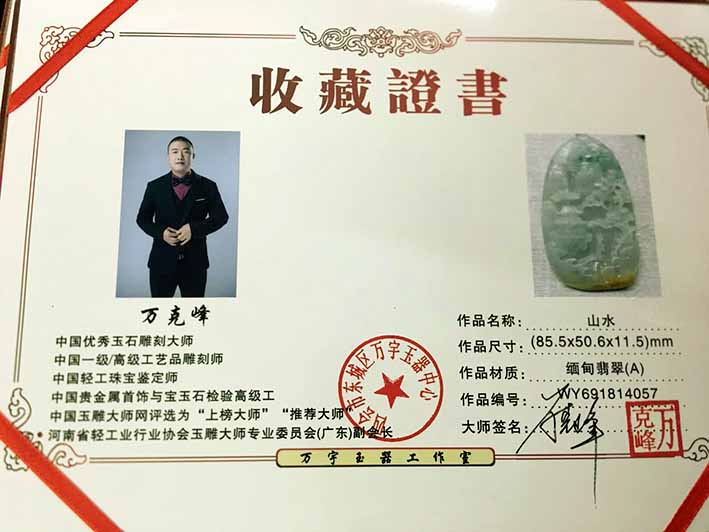 收藏證書
万克峰
中国优秀玉石雕刻大师
中国一级/高级工艺品雕刻师
中国轻工珠宝鉴定师
中国贵金属首饰与宝玉石检验高级工
中国玉雕大师网评选为“上榜大师”“推荐大师”
河南省轻工业行业协会玉雕大师专业委员会(广东)副会长
作品名称: 山水
作品尺寸: (85.5x50.6x11.5)mm
作品材质: 缅甸翡翠(A)
作品编号: WY691814057
大师签名: 万克峰
万克峰
会市东城区万宇玉器中心
万宇玉器工作室